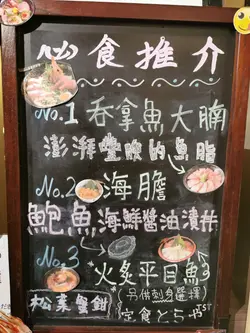 必食推介
No.1 吞拿魚大腩
澎湃豐腴的魚脂
No.2 海膽
鮑魚海鮮醬油漬丼
No.3 火炙平目魚
松葉蟹鉗
另供刺身選擇
定食とろ丼